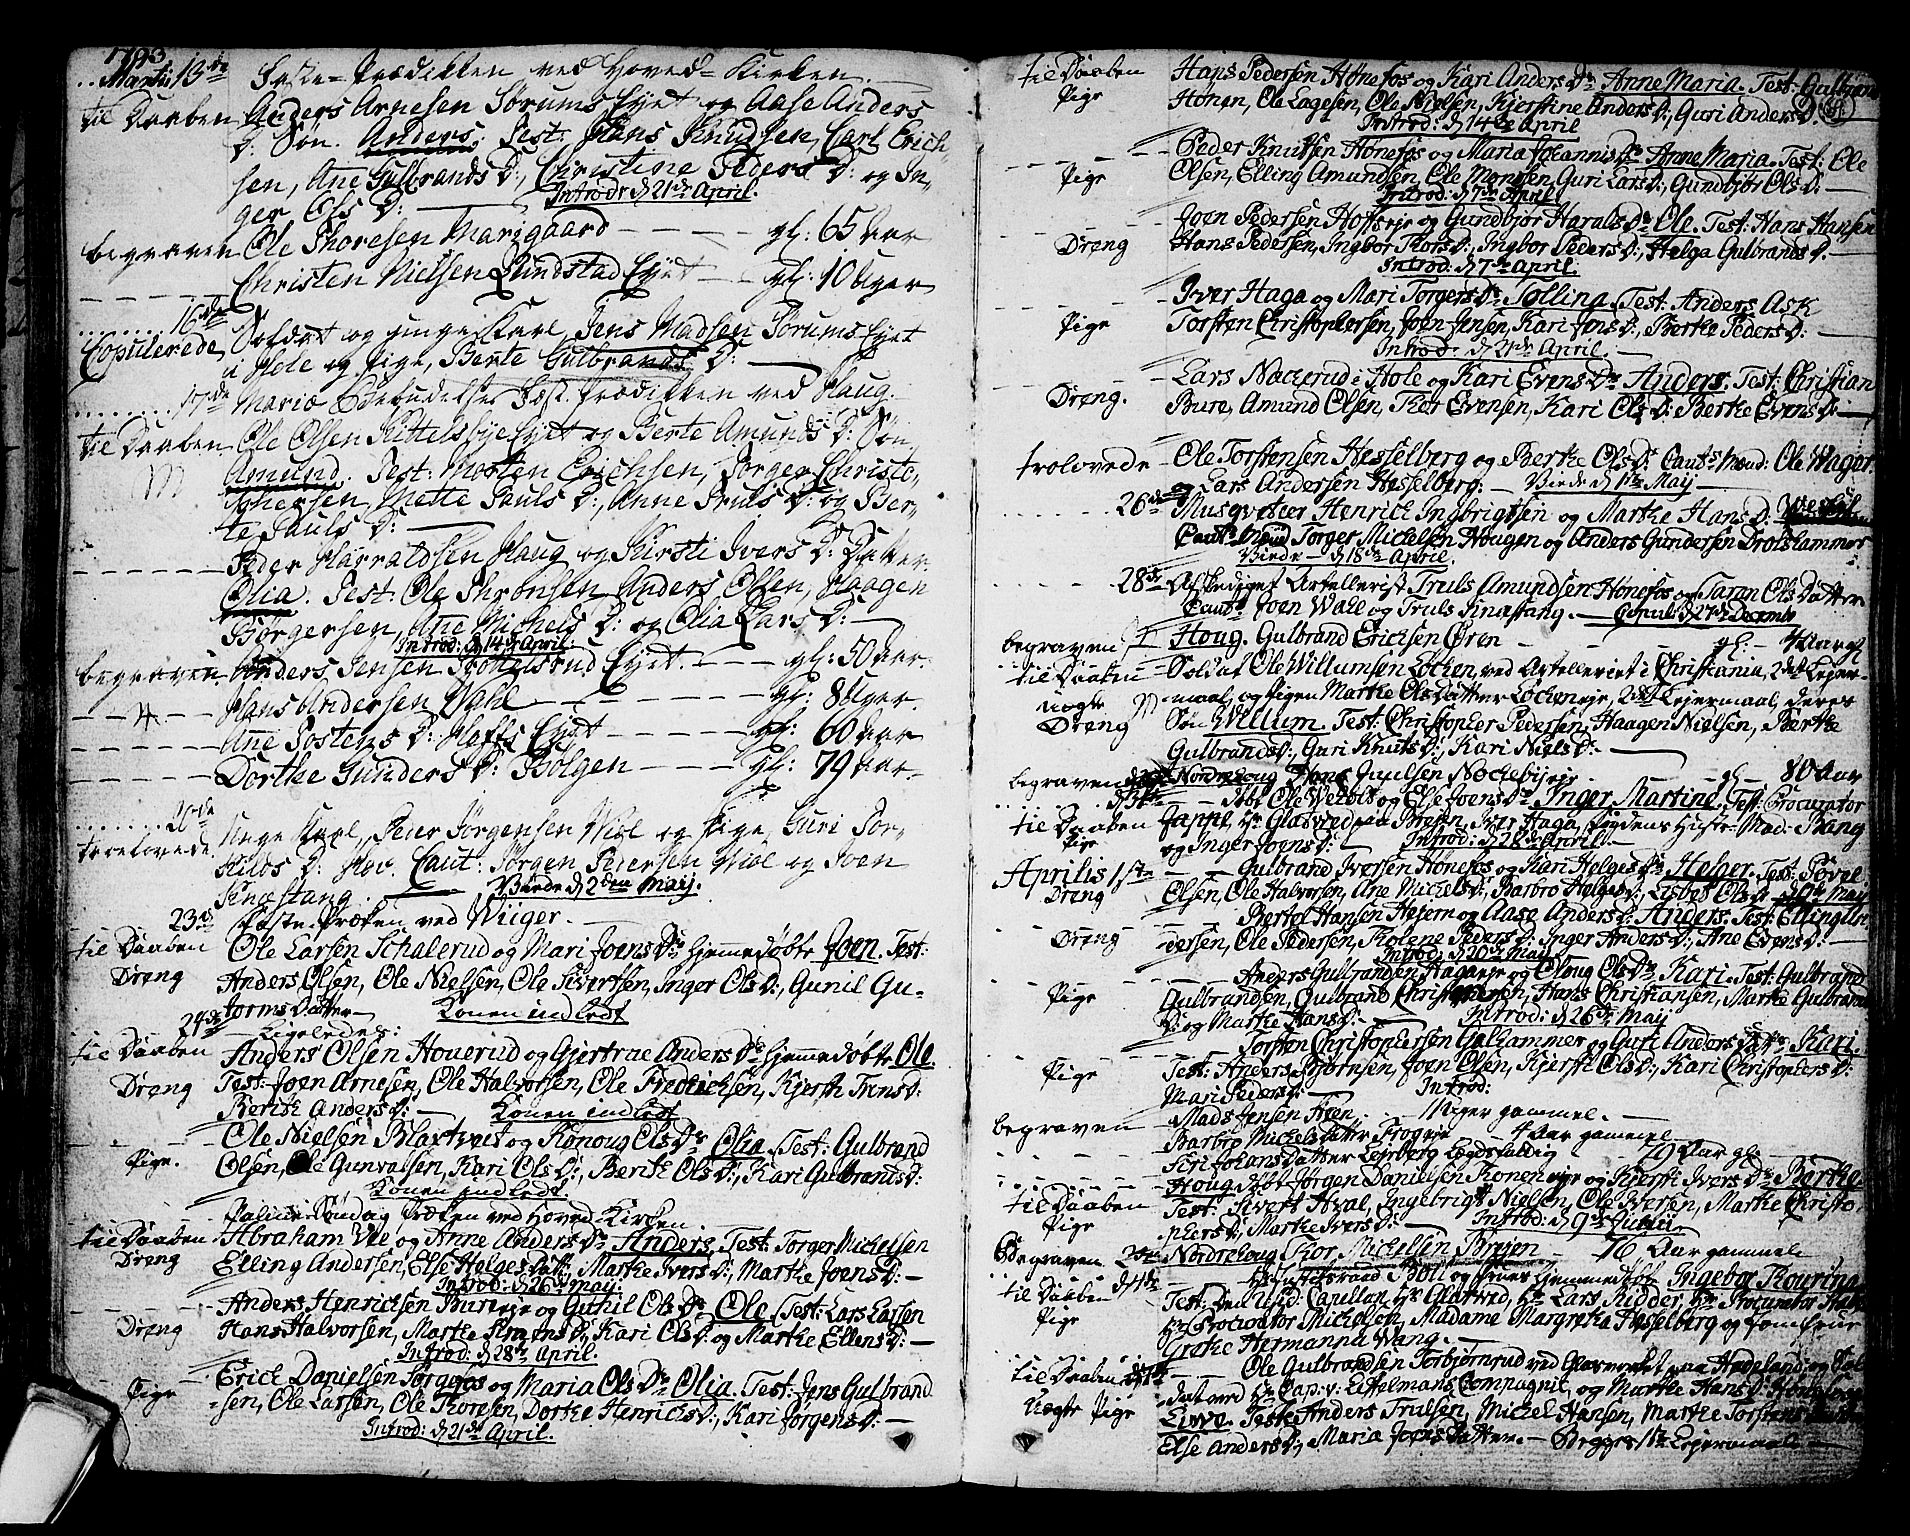 1793
Martii 13de Faste-Prædikken ved Hoved-Kirken.
til Daaben Anders Arnesen Sørums Eyet og Aase Anders
D: Søn. Anders. Test: Hans Knudsen, Carl Erich-
sen, Ane Gulbrands D:, Christine Peders D: og In-
ger Ols D:
Introd: d 21de April.
begraven Ole Thoresen Marigaard gl: 65 Aar
Christen Nielsen Lundstad Eyet gl: 10 Uger
16de
Copulerede Soldat og unge Karl, Jens Madsen Sørums Eyet
i Hole og Pige, Berte Gulbrands D:
17de Mariæ Bebudelses Fest. Prædikken ved Haug.
til Daaben Ole Olsen Kittelsbye Eyet og Berte Amunds D: Søn
Amund. Test: Morten Erichsen, Jørgen Christo-
phersen, Mette Pauls D:, Anne Truls D: og Ber-
te Pauls D:
Peder Harraldsen Haug og Kirsti Ivers D: Datter
Olia. Test: Ole Thronsen, Anders Olsen, Haagen
Børgersen, Ane Michels D: og Olia Lars D:
Introd: d 14de April.
begraven Anders Jensen Eyet. gl: 50 Aar
Hans Andersen Wahl gl: 8 Uger.
Ane Jostens D: Hoffs Eyet gl: 60 Aar
Dorthe Gunders D: Bølgen gl: 79 Aar
20de
troelovede Unge Karl, Peder Jørgensen Wiol og Pige, Guri Tor-
kilds D: Hov. Caut: Jørgen Pedersen Wiol og Joen
Knestang. Viede d 2den Maij.
23de Faste-Præken ved Wiiger.
til Daaben Ole Larsen Schalerud og Mari Joens Dr Hjemmedøbte Joen. Test:
Drøng Anders Olsen, Ole Nielsen, Ole Sivertsen, Inger Ols D:, Gunil Gu-
torms Datter Konen indledt
24de Ligeledes:
til Daaben Anders Olsen Houerud og Gjertrue Anders Dr Hjemmedøbte Ole.
Drøng Test: Joen Arnesen, Ole Halvorsen, Ole Fredrichsen, Kjersti Trons D:
Berthe Anders D: Konen indledt
Ole Nielsen Blaxtvet og Kønoug Ols Dr Olia. Test: Gulbrand
Pige. Olsen, Ole Gunvalsen, Kari Ols D:, Berthe Ols D:, Kari Gulbrands D:
Konen indledt.
Palmesøndag Præken ved Hoved Kirken
til Daaben Abraham Vie og Anne Anders Dr Anders. Test: Torger Michelsen
Drøng Elling Andersen, Else Helges Datt:, Marthe Ivers D:, Marthe Joens D:
Introd: d 26de Maij.
Anders Henrichsen Bureeje og Gunil Ols Dr Ole. Test: Lars Larsen
Drøng Hans Halvorsen, Marthe D:, Kari Ols D: og Marthe Ellens D:
Introd: d 28de April.
Erick Danielsen og Maria Ols Dr Olia. Test: Jens Gulbrand
Pige sen, Ole Larsen, Ole Thoresen, Dorthe Henrichs D:, Kari Jørgens D:
Introd: d 21de April.
til Daaben Hans Pedersen Hønefos og Kari Anders Dr Anne Maria. Test: Gulbrand
Pige Hønen, Ole Lagesen, Ole Nielsen, Kjerstine Anders D:, Guri Anders D:
Introd: d 14de April
Peder Knutsen Hønefos og Maria Johannis Dr Anne Maria. Test: Ole
Pige Olsen, Elling Amundsen, Ole Monsen, Guri Lars D:, Gundbjør Ols D:
Introd: d 7de April
Joen Pedersen Hoffseje og Gundbjør Haralds Dr Ole. Test: Hans Hansen
Drøng Hans Pedersen, Ingbor Thors D:, Ingbor Peders D:, Helga Gulbrands D:
Introd: d 7de April.
Iver Haga og Mari Torgers Dr Tolline. Test: Anders Ask
Pige Torsten Christophersen, Joen Jensen, Kari Jens D:, Berthe Peders D:
Introd: d 21de April.
Lars Nackerud i Hole og Kari Evens Dr Anders. Test: Christian
Drøng. Bure, Amund Olsen, Thor Evensen, Kari Ols D:, Berthe Evens D:
trolovede Ole Torstensen Hesselberg og Berthe Ols D: Cauts Mend: Ole Wager
og Lars Andersen Hesselberg. Viede d 1ste Maij
26de Musqveteer Henrick Ingbrigtsen og Marthe Hans D:
Caut: Mend Torger Michelsen Hougen og Anders Gundersen Trolshammer
Viede d 18de April.
28de Afskediget Artellerist Truls Amundsen Hønefos og Taran Ols Datter
Caut: Joen Wahl og Truls Copul: d 27de Decembr
begraven Houg. Gulbrand Ericksen Øren gl: 4 Aar
til Daaben Soldat Ole Willumsen Lochen, ved Artelleriet i Christiania, 2det Lejer-
uægte maal, og Pigen Marthe Ols Datter Lochen eje, 2det Lejermaal, deres
Drøng Søn Willum. Test: Christopher Pedersen, Haagen Nielsen, Berthe
Gulbrands D:, Guri Knuts D:, Kari Niels D:
begraven Nordrehoug Hans Juulsen Nockebyeje gl: 80 Aar
d 31te
til Daaben Døbt Ole Wetolt og Else Joens Dr Inger Martine. Test: Procurator
Pige Jappe, Hr Glatved paa Breien, Iver Haga, Mad: Bang
og Inger Joens D: Introd: d 28de April.
Aprilis 1ste Gulbrand Iversen Hønefos og Kari Helges Dr Helger. Test: Povel
Drøng Olsen, Ole Halvorsen, Ane Michels D:, Barbro Helges D:, Lisbet Ols D:
Bertol Hansen Hesern og Aase Anders D: Anders. Test: Elling An-
Drøng dersen, Ole Pedersen, Tholene Peders D:, Inger Anders D:, Ane Evens D:
Introd: d 20de Maij
Anders Gulbrandsen Hagaeje og Oloug Ols Dr Kari. Test: Gulbrand
Pige Gulbrandsen, Gulbrand Christophersen, Hans Christiansen, Marthe Gulbrand
D: og Marthe Hans D: Introd: d 26de Maij
Torsten Christophersen Galhammer og Guri Anders Datter Kari.
Pige Test: Anders Bjørnsen, Joen Olsen, Kjersti Ols D:, Kari Christophers D:
Mari Peders D: Introd:
begraven Mads Jensen Fiøn. 11 Uger gammel.
Barbro Michels Datter Frog eje 4 Aar gammel
Siri Johans Datter Lejeberg Legdsfaldig 79 Aar gl:
Houg. Døbt Jørgen Danielsen Honen eje og Kjersti Ivers Dr Berthe.
til Daaben Test: Sivert Hval, Ingebrigt Nielsen, Ole Iversen, Marthe Christo-
Pige phers D:, Marthe Ivers D: Introd: d 9de Junii
Begraven 2den Nordrehoug Thor Michelsen Breien 76 Aar gammel
til Daaben d 4de Hr Justitsraad Boll og Frues Hjemmedøbt Ingebor Thourina
Pige Test: Den resid: Capellan Hr Glatved, Hr Lars Ridder, Hr Procurator
Hr Procurator Michelsen, Madame Margretha Hesselberg og Jomfrue
Grethe Hermanna Wang.
til Daaben Ole Gulbrandsen Torbjørnrud ved Glasverket paa Hadeland og Sol-
Uægte Pige dat ved Hr Cap: v: Eitzelmans Compagnie, og Marthe Hans D:
Live. Test: Anders Trulsen, Michel Hansen, Marthe Torstens Datter
Else Anders D:, Maria Joens Datter. Begges 1ste Lejermaal